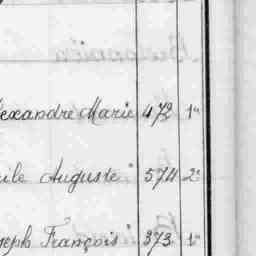 exandre Marie 472 1ª
ile Auguste 574 2ª
seph François 373 1ª